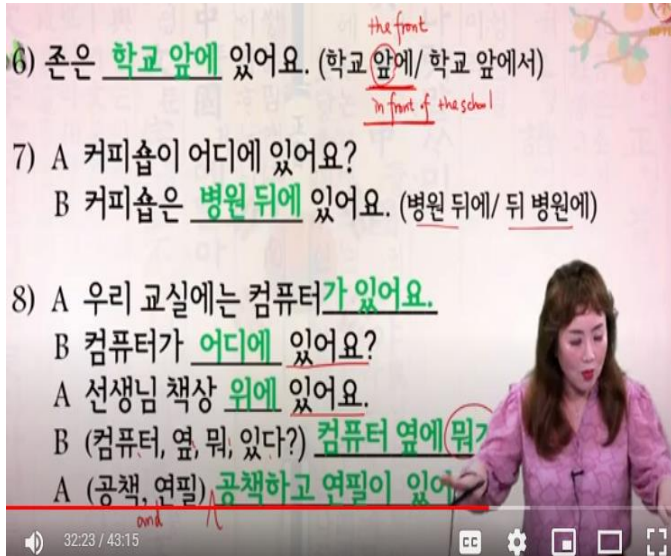 the front
6) 존은 학교 앞에 있어요. (학교 앞에/ 학교 앞에서)
in front of the school
7) A 커피숍이 어디에 있어요?
B 커피숍은 병원 뒤에 있어요. (병원 뒤에/ 뒤 병원에)
8) A 우리 교실에는 컴퓨터가 있어요.
B 컴퓨터가 어디에 있어요?
A 선생님 책상 위에 있어요.
B (컴퓨터, 옆, 뭐, 있다?) 컴퓨터 옆에 뭐가
A (공책, 연필) 공책하고 연필이 있어
and
32:23 / 43:15
CC